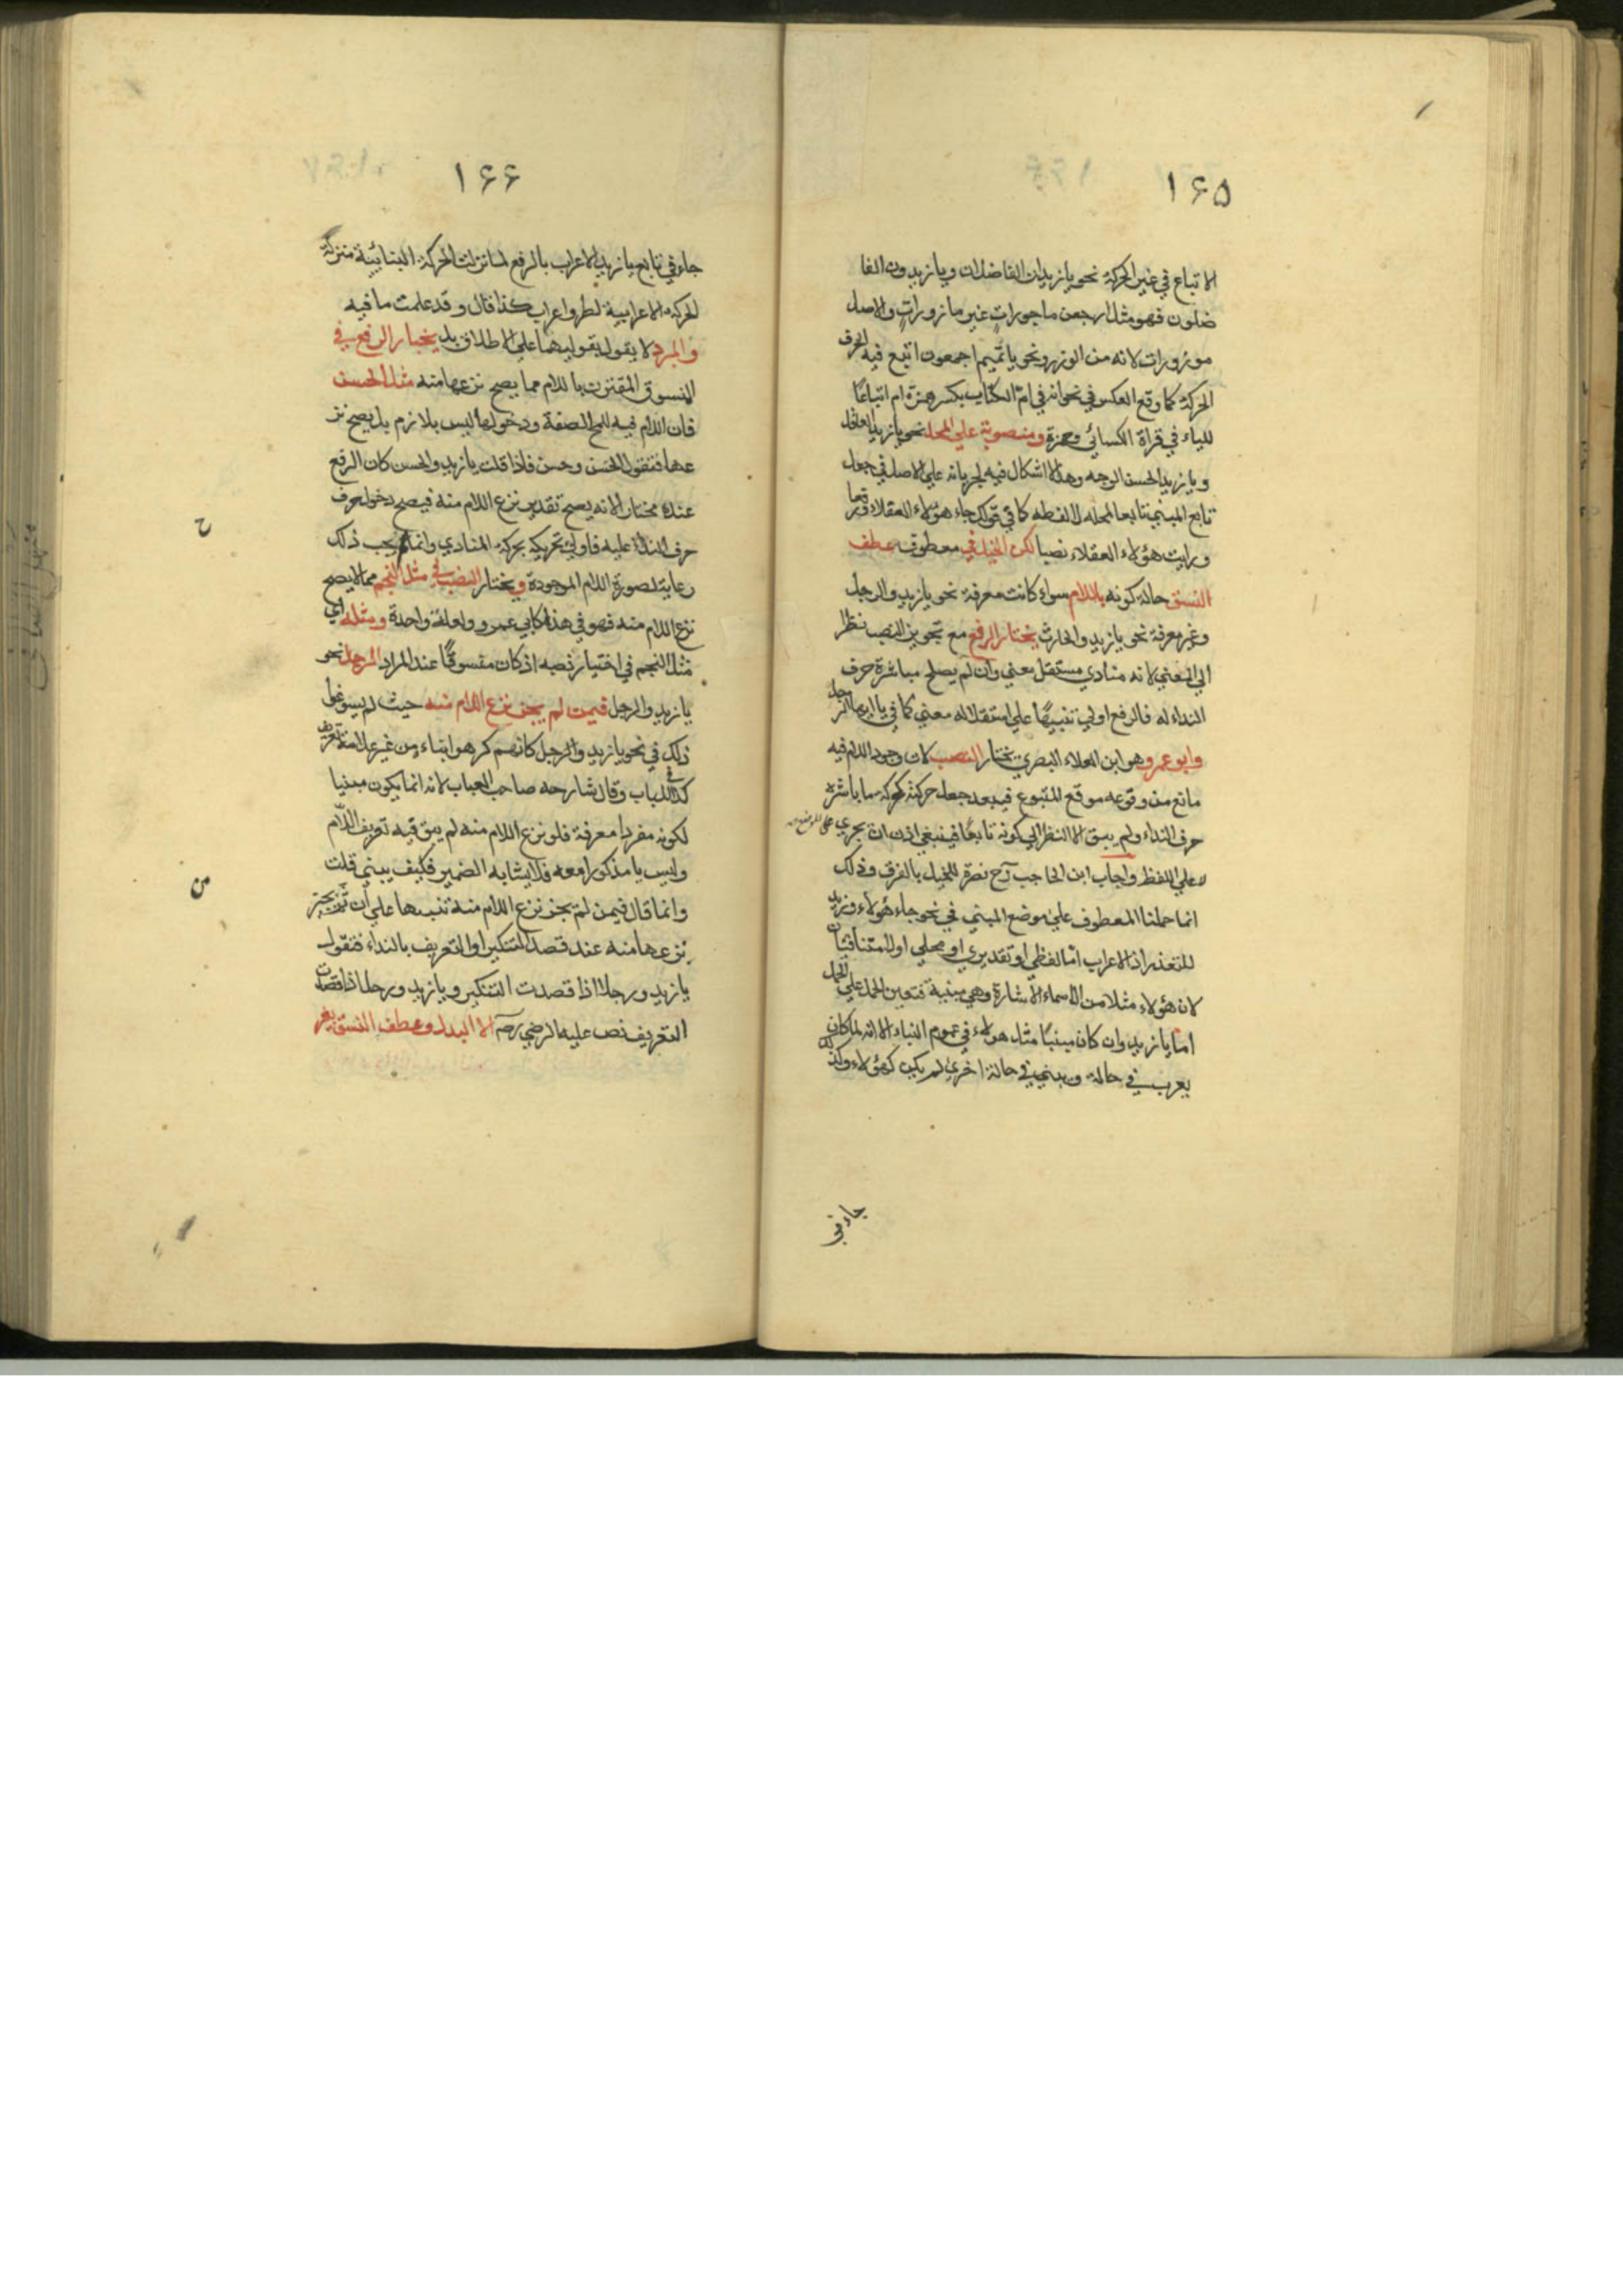 ١٦٥
الاتباع في غير الحركة نحو يا زيدان الفاضلان ويا زيدون الفا
ضلون فهو مثل ارجعن ماجورات غير مازورات والاصل
موزورات لانه من الوزر ونحو يا تميم اجمعون اتبع فيه الحرف
الحركة كما وقع العكس في نحو انه في ام الكتاب بكسر همزة ام اتباعًا
للياء في قراة الكسائي وحمزة ومنصوبة علي المحل نحو يا زيد العاقل
ويا زيد الحسن الوجه وهذا لا اشكال فيه لجريانه علي الاصل في جعل
تابع المبني تابعا لمحله لا لفظه كما في قولك جاء هؤلاء العقلاء رفعا
ورايت هؤلاء العقلاء نصبا لكن الخليل في معطوف عطف
النسق حالة كونه باللام سواء كانت معرفة نحو يا زيد والرجل
وغير معرفة نحو يا زيد والحارث يختار الرفع مع تجويز النصب نظرا
الي المعني لانه منادي مستقل معني وان لم يصلح مباشرة حرف
النداء له فالرفع اولي تنبيهًا علي استقلاله معني كما في يا ايها الرجل
وابو عمرو وهو ابن العلاء البصري يختار النصب لان وجود اللام فيه
مانع من وقوعه موقع المتبوع فيبعد جعل حركته كحركة ما باشره
حرف النداء ولم يبق الا النظر الي كونه تابعًا فينبغي اذن ان يجري علي الموضع
لا علي اللفظ واجاب ابن الحاجب رح نصرة للخليل بالفرق وذلك
انما حملنا المعطوف علي موضع المبني في نحو جاء هؤلاء وزيد
للتعذر اذ الاعراب اما لفظي او تقديري او محلي اولا متنافيان
لان هؤلاء مثلا من الاسماء الاشارة وهي مبنية فتعين الحمل علي المحل
اما يا زيد وان كان مبنيًا مثل هولاء في عموم البناء الا انه لما كان
يعرب في حالة ويبني في حالة اخري لم يكن كهؤلاء ولذلك
جاء في
١٦٦
جاء في تابع يا زيد الاعراب بالرفع لما نزلت الحركة البنائية منزلة
الحركة الاعرابية لطرو اعراب كذا قال وقد علمت ما فيه
والمبرد لا يقول بقوليهما علي الاطلاق بل يختار الرفع في
المنسوق المقترن باللام مما يصح نزعها منه مثل الحسن
فان اللام فيه للمح الصفة ودخولها ليس بلازم بل يصح نز
عها فتقول الحسن وحسن فاذا قلت يا زيد والحسن كان الرفع
عنده مختارا لانه يصح تقدير نزع اللام منه فيصح دخول حرف
حرف النداء عليه فاولي تحريكه بحركة المنادي وانما لم يجب ذلك
رعاية لصورة اللام الموجودة ويختار النصب في مثل النجم مما لا يصح
نزع اللام منه فهو في هذا كابي عمرو ولعلة واحدة ومثله اي
مثل النجم في اختيار نصبه اذ كان منسوقًا عند المبرد الرجل نحو
يا زيد والرجل فيمن لم يجز نزع اللام منه حيث لم يسوغ
ذلك في نحو يا زيد والرجل كانهم كرهوا بناءه من غير علامة تعريف
كذا في اللباب وقال شارحه صاحب العباب لانه انما يكون مبنيا
لكونه مفردا معرفة فلو نزع اللام منه لم يبق فيه تعريف اللام
وليس يا مذكورا معه فلا يشابه الضمير فكيف يبني قلت
وانما قال فيمن لم يجز نزع اللام منه تنبيها علي ان ثم من يجيز
نزعها منه عند قصد التنكير او التعريف بالنداء فتقول
يا زيد ورجلا اذا قصدت التنكير ويا زيد ورجل اذا قصدت
التعريف نص عليه الرضي رحه الا البدل وعطف النسق بغير
ح
من